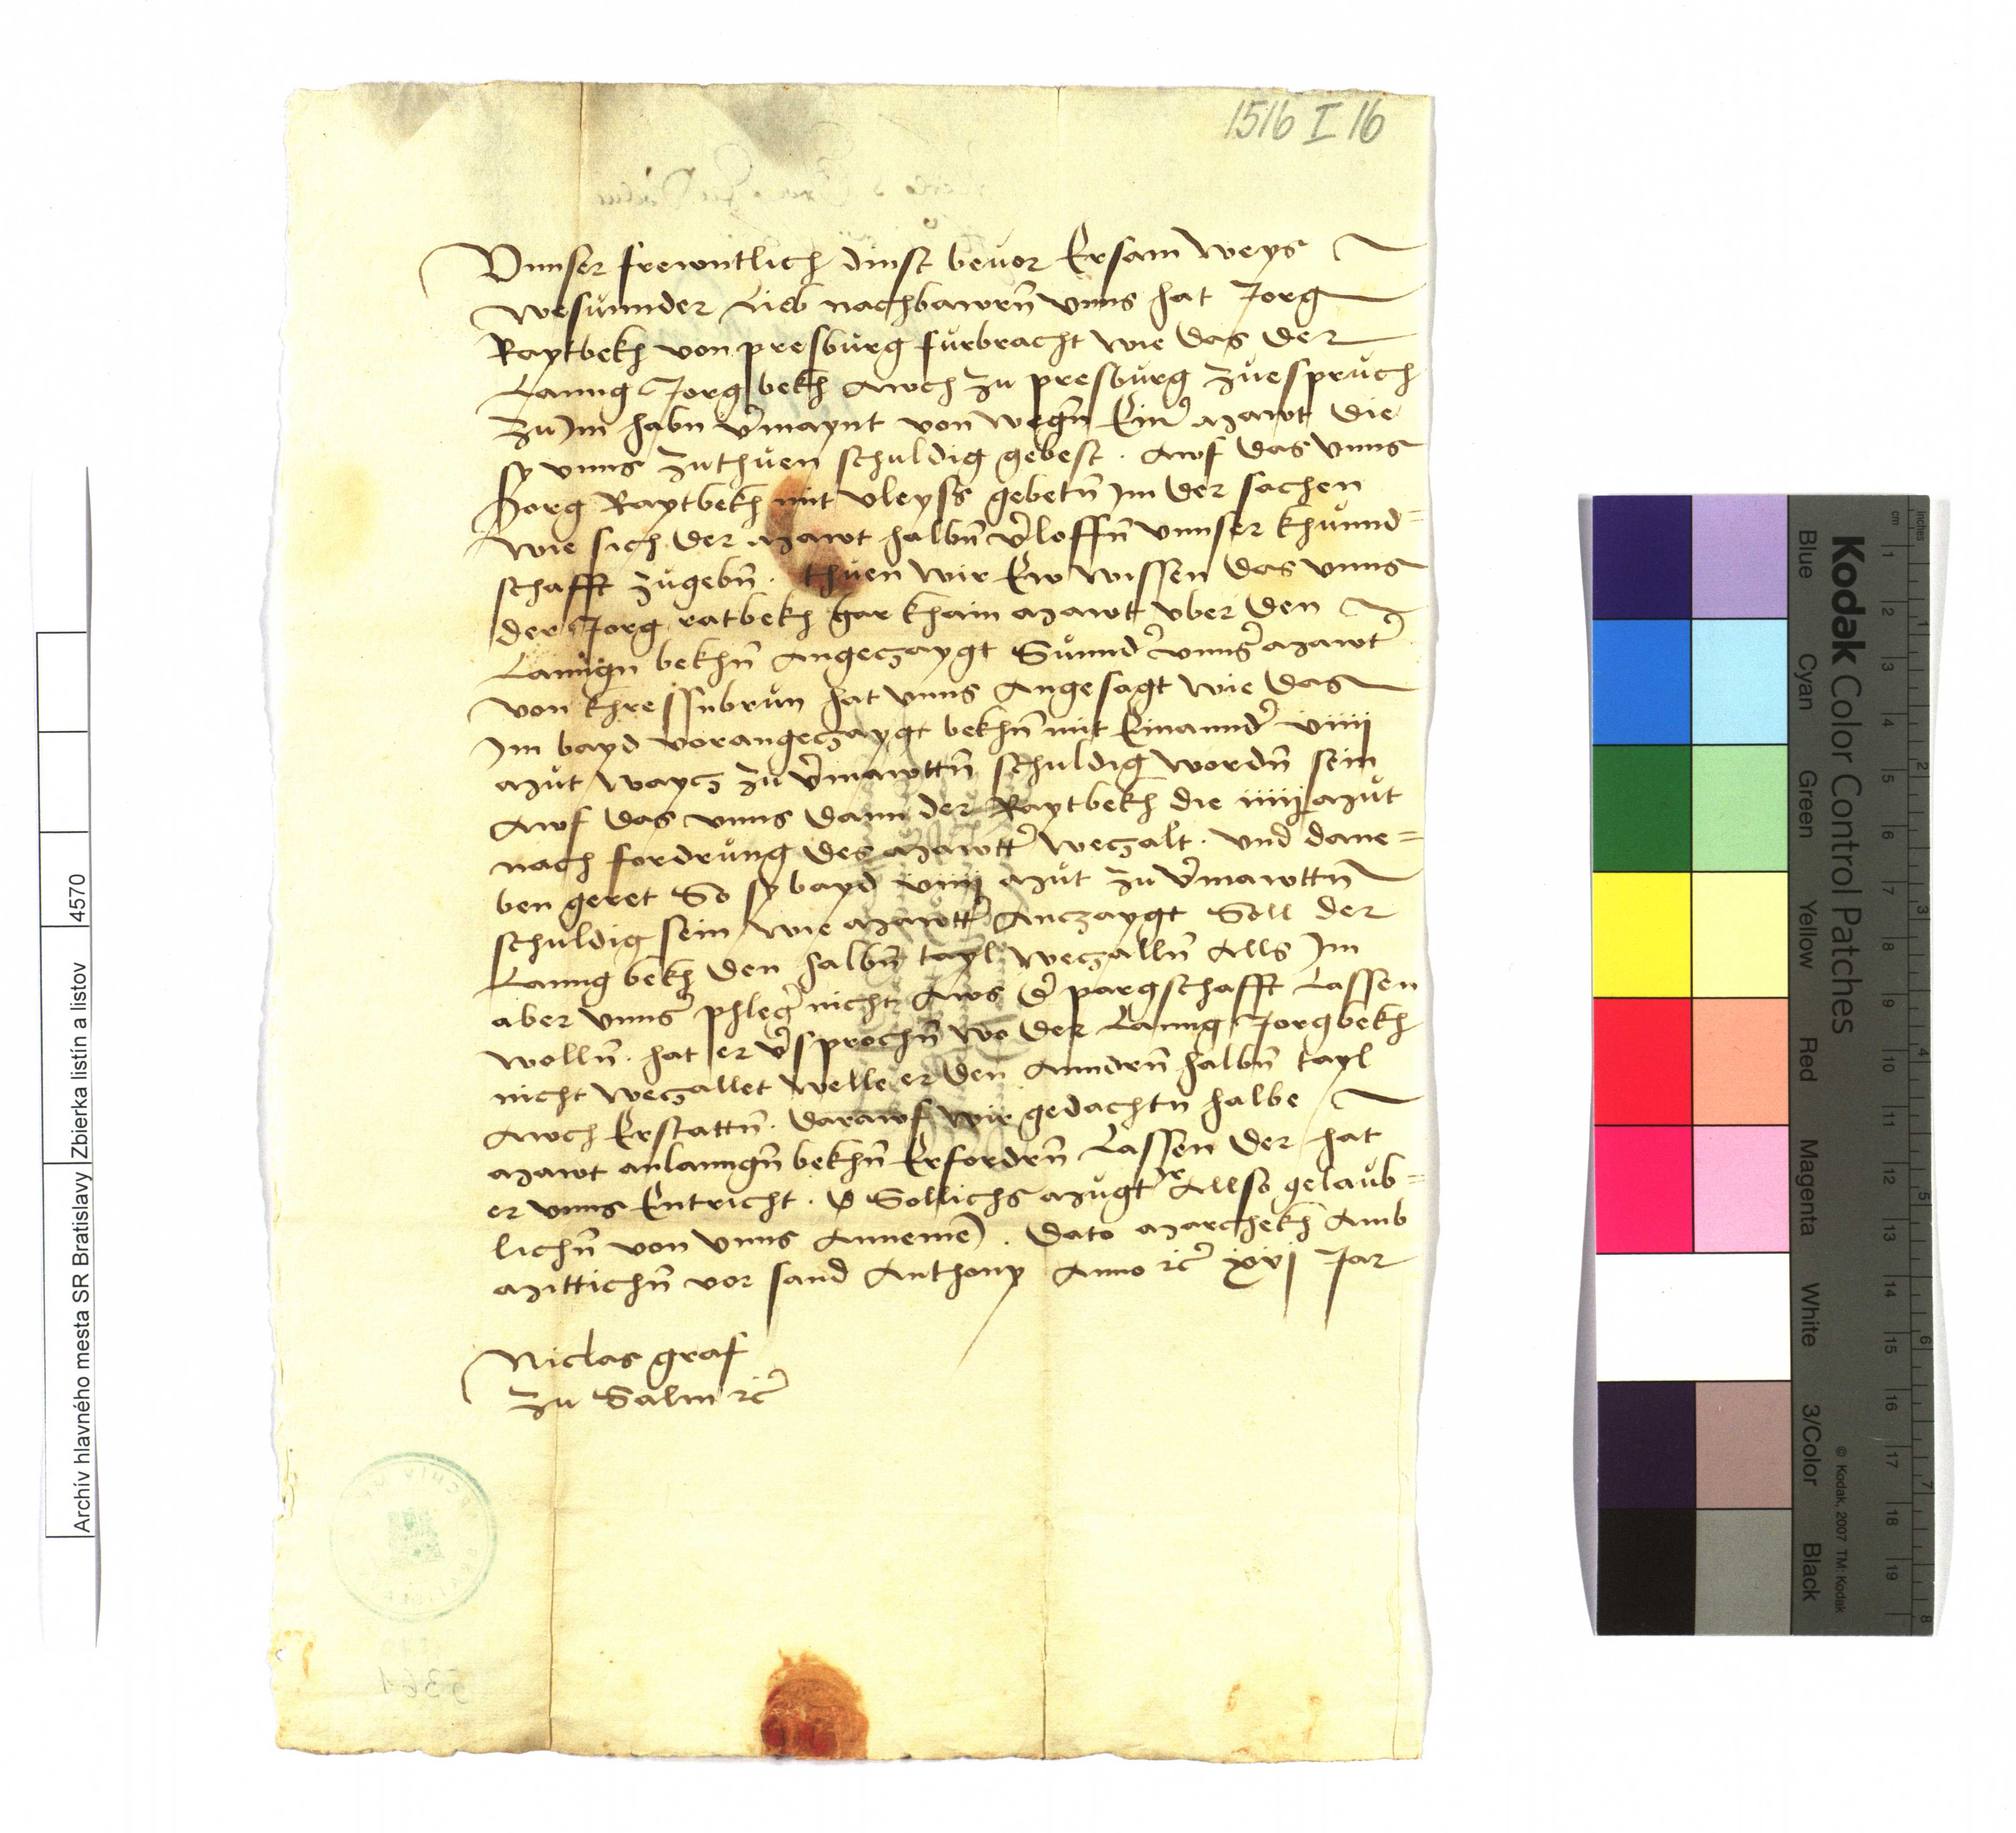 1516 I 16
Vnnser frewntlich dinst beuor Ersam weys
wesunnder Lieb nachbawrn̄ vnns hat Jorg
Raytbekh von presburg furbracht wie das der
Lanng Jorg bekh awch zu presburg zuespruch
zu Jm habn v̄maynt von wegn̄ Einˀ mawt die
sy vnns zuthuen schuldig gebest . Awf das vnns
Jorg Raytbekh mit vleyss gebetn̄ Jm der sachen
wie sich der mawt halbn̄ v̄loffn̄ vnnser khunnd=
schafft zugebn̄ . thuen wir Ew wissen das vnns
der Jorg ratbekh gar khain mawt vber den
Lanngn bekhn̄ angeczaygt Sunndˀ vnnsˀ mawtˀ
von khressnbrun hat vnns angesagt wie das
Jm bayd vorangeczaygt bekhn̄ mit Einanndˀ viiij
mut waycz zu v̄mawttn̄ schuldig wordn̄ sein
Awf das vnns dann der Raytbekh die iiiij mut
nach fordrung des mawttˀ weczalt . vnd dane=
ben geret So sy bayd viiij mut zu v̄mawttn̄
schuldig sein wie mawttˀ anczaygt Soll der
Lanng bekh den halbn̄ tayl weczalln̄ Alls Jm
aber vnnsˀ phlegˀ nicht aws dˀ pargschafft Lassen
wolln̄ . hat er v̄sprochn̄ wo der Lanng Jorgbekh
nicht weczallet welle er den anndrn̄ halbn̄ tayl
awch Erstattn̄ . darawf wir gedachtn halbe
mawt an lanngn̄ bekhn̄ Erfordrn̄ Lassen der hat
er vnns Entricht . Sollichs mugt Jr Allso gelaub=
lichn̄ von vnns annemē . Dato marchekh Amb
mittichn̄ vor sand Anthony Anno ⁊c̄ xvj Jar
Niclas graf
zu Salm ⁊c̄
Archív hlavného mesta SR Bratislavy
Zbierka listín a listov
4570
Kodak Color Control Patches
Blue
Cyan
Green
Yellow
Red
Magenta
White
3/Color
Black
© Kodak, 2007 TM: Kodak
inches
1
2
3
4
5
6
7
8
cm
1
2
3
4
5
6
7
8
9
10
11
12
13
14
15
16
17
18
19